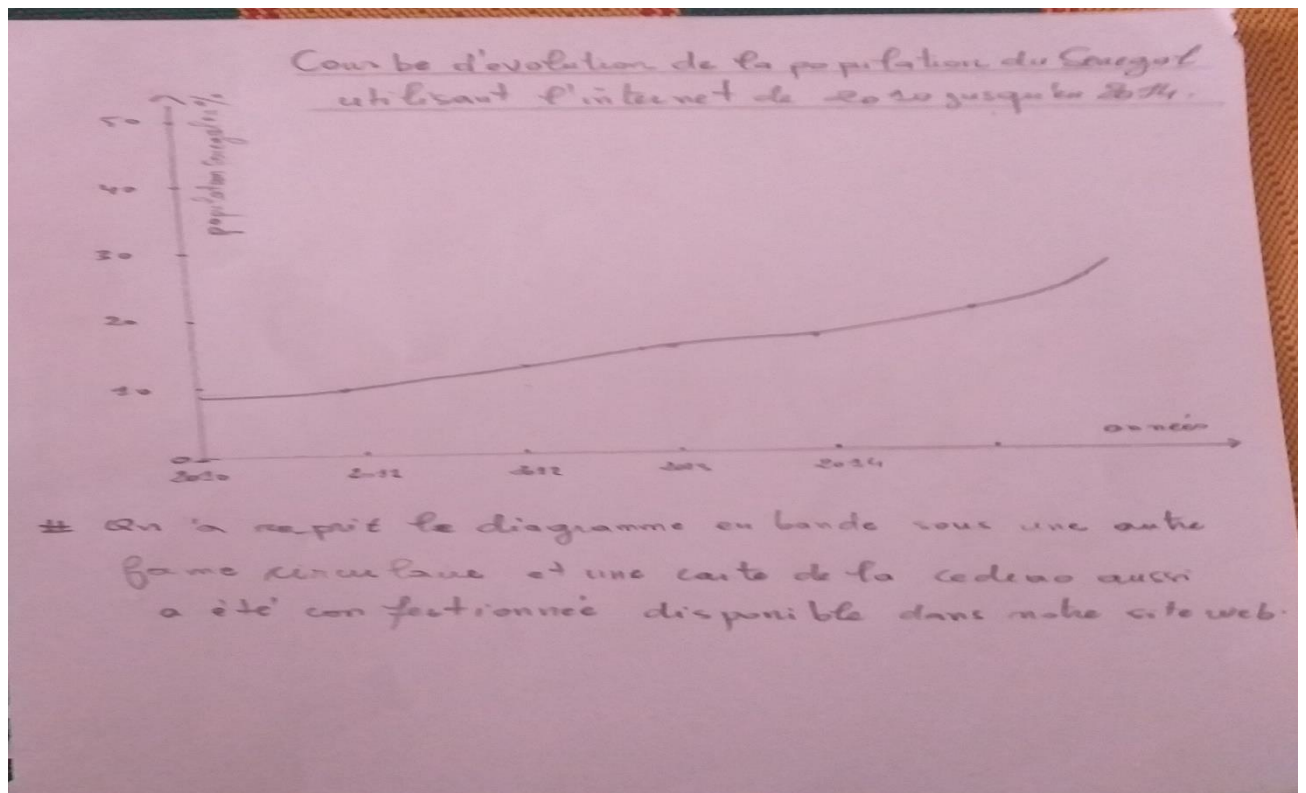 Courbe d'evolution de la population du Senegal
utilisant l'internet de 2010 jusqu'en 2014.
population Senegal en %
50
40
30
20
10
0
années
2010 2012 2014
# On a reprit le diagramme en bande sous une autre
forme circulaire et une carte de la cedeao aussi
a été confectionneé disponible dans notre site web.